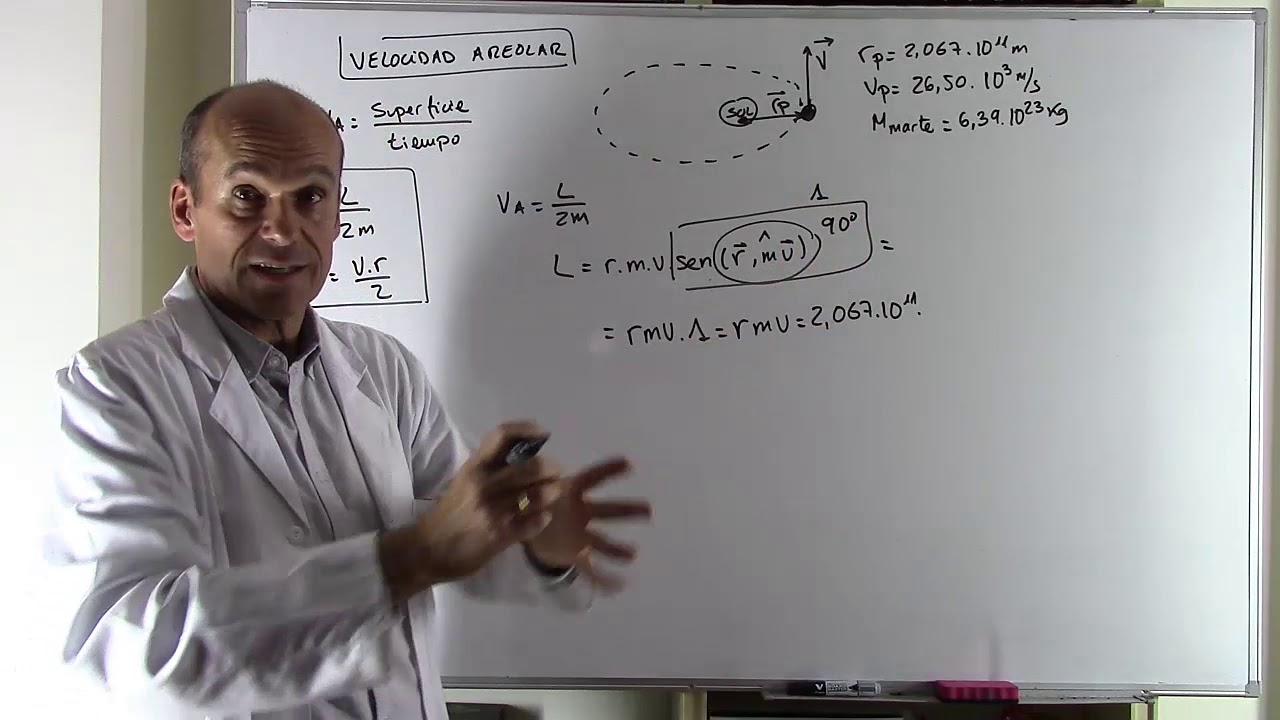 VELOCIDAD AREOLAR
VA = Superficie / tiempo
L / 2m
= V.r / 2
Sol r⃗p
v⃗
rp = 2,067.10¹¹ m
Vp = 26,50.10³ m/s
Mmarte = 6,39.10²³ kg
VA = L / 2m
1
L = r.m.v sen(r⃗, mv⃗) 90º =
= rmv.1 = rmv = 2,067.10¹¹.